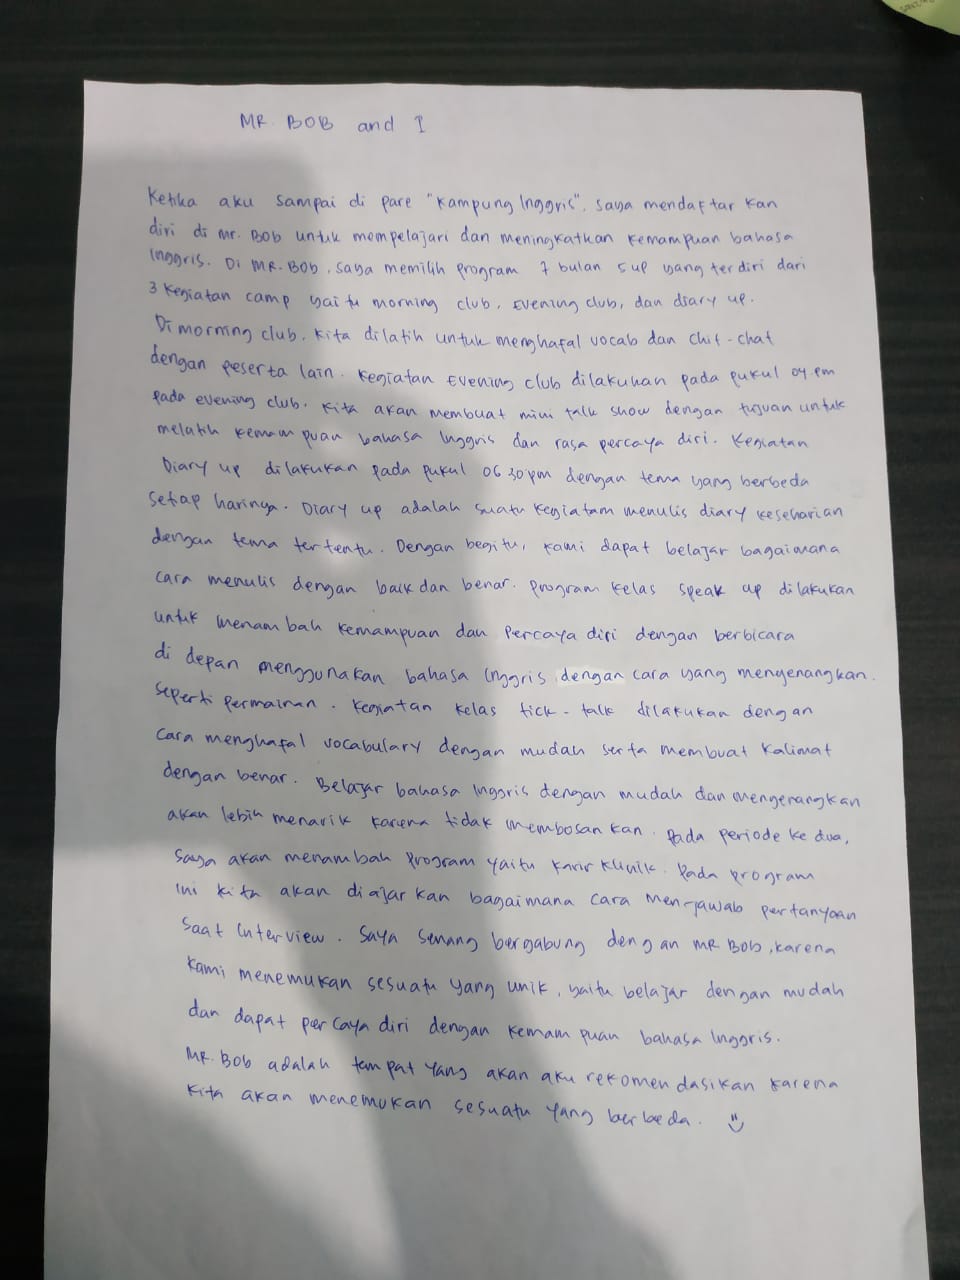 MR. BOB and I
Ketika aku sampai di pare "Kampung Inggris", saya mendaftar kan
diri di Mr. Bob untuk mempelajari dan meningkatkan kemampuan bahasa
Inggris. Di MR. BOB, saya memilih program 7 bulan sup yang terdiri dari
3 kegiatan camp yaitu morning club, Evening club, dan diary up.
Di morning club, kita dilatih untuk menghafal vocab dan chit-chat
dengan peserta lain. kegiatan Evening club dilakukan pada pukul 04 pm
pada evening club. kita akan membuat mini talk show dengan tujuan untuk
melatih kemampuan bahasa Inggris dan rasa percaya diri. kegiatan
Diary up dilakukan pada pukul 06 30 pm dengan tema yang berbeda
setiap harinya. Diary up adalah suatu kegiatam menulis diary keseharian
dengan tema tertentu. Dengan begitu, kami dapat belajar bagaimana
cara menulis dengan baik dan benar. program kelas speak up dilakukan
untuk menambah kemampuan dan percaya diri dengan berbicara
di depan menggunakan bahasa Inggris dengan cara yang mengenangkan.
seperti permainan. kegiatan kelas tick-talk dilakukan dengan
cara menghafal vocabulary dengan mudah serta membuat kalimat
dengan benar. Belajar bahasa Inggris dengan mudah dan mengenangkan
akan lebih menarik karena tidak membosan kan. Pada periode ke dua,
saya akan menambah program yaitu karir klinik. Pada program
ini kita akan diajar kan bagaimana cara menjawab pertanyaan
saat Interview. Saya senang bergabung dengan MR BOB, karena
kami menemukan sesuatu yang unik, yaitu belajar dengan mudah
dan dapat percaya diri dengan kemampuan bahasa Inggris.
MR. Bob adalah tempat yang akan aku rekomendasikan karena
kita akan menemukan sesuatu yang berbeda.